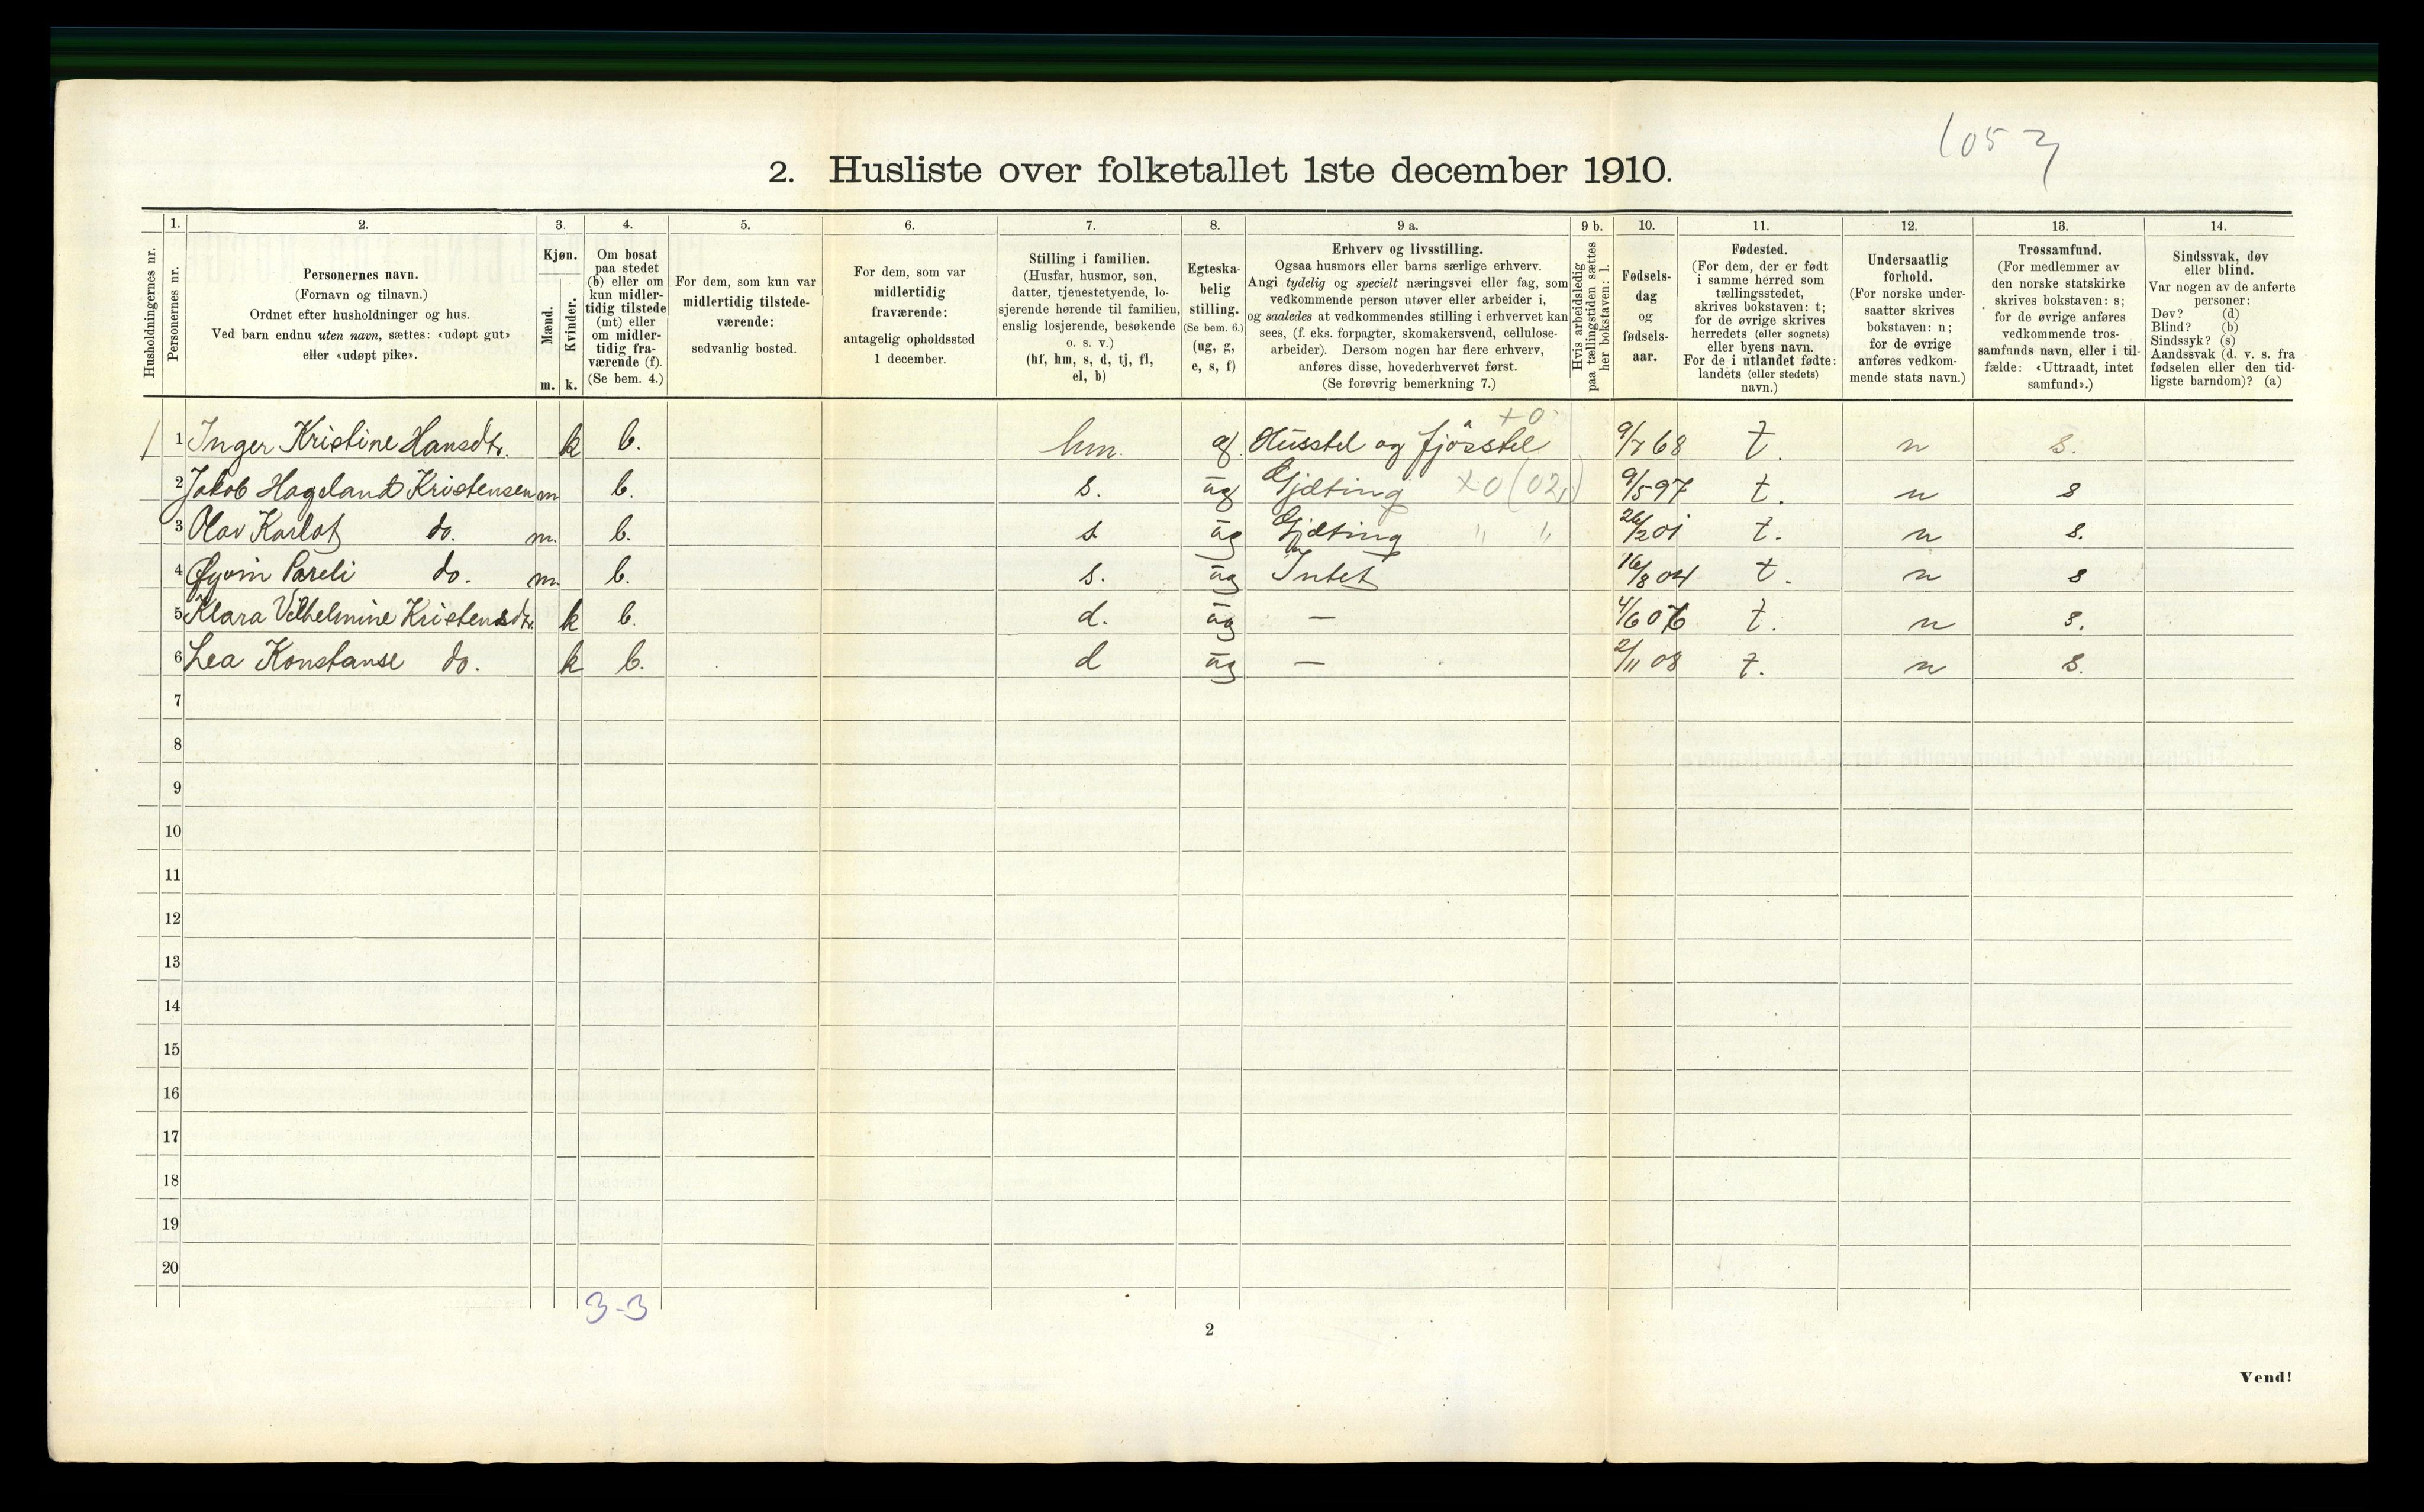 1057
2. Husliste over folketallet 1ste december 1910.
1. 2. 3. 4. 5. 6. 7. 8. 9 a. 9 b. 10. 11. 12. 13. 14.
Husholdningernes nr.
Personernes nr.
Personernes navn.
(Fornavn og tilnavn.)
Ordnet efter husholdninger og hus.
Ved barn endnu uten navn, sættes: «udøpt gut»
eller «udøpt pike».
Kjøn.
Mænd.
Kvinder.
m. k.
Om bosat
paa stedet
(b) eller om
kun midler-
tidig tilstede
(mt) eller
om midler-
tidig fra-
værende (f).
(Se bem. 4.)
For dem, som kun var
midlertidig tilstede-
værende:
sedvanlig bosted.
For dem, som var
midlertidig
fraværende:
antagelig opholdssted
1 december.
Stilling i familien.
(Husfar, husmor, søn,
datter, tjenestetyende, lo-
sjerende hørende til familien,
enslig losjerende, besøkende
o. s. v.)
(hf, hm, s, d, tj, fl,
el, b)
Egteska-
belig
stilling.
(Se bem. 6.)
(ug, g,
e, s, f)
Erhverv og livsstilling.
Ogsaa husmors eller barns særlige erhverv.
Angi tydelig og specielt næringsvei eller fag, som
vedkommende person utøver eller arbeider i,
og saaledes at vedkommendes stilling i erhvervet kan
sees, (f. eks. forpagter, skomakersvend, cellulose-
arbeider). Dersom nogen har flere erhverv,
anføres disse, hovederhvervet først.
(Se forøvrig bemerkning 7.)
Hvis arbeidsledig
paa tællingstiden sættes
her bokstaven: l.
Fødsels-
dag
og
fødsels-
aar.
Fødested.
(For dem, der er født
i samme herred som
tællingsstedet,
skrives bokstaven: t;
for de øvrige skrives
herredets (eller sognets)
eller byens navn.
For de i utlandet fødte:
landets (eller stedets)
navn.)
Undersaatlig
forhold.
(For norske under-
saatter skrives
bokstaven: n;
for de øvrige
anføres vedkom-
mende stats navn.)
Trossamfund.
(For medlemmer av
den norske statskirke
skrives bokstaven: s;
for de øvrige anføres
vedkommende tros-
samfunds navn, eller i til-
fælde: «Uttraadt, intet
samfund».)
Sindssvak, døv
eller blind.
Var nogen av de anførte
personer:
Døv? (d)
Blind? (b)
Sindssyk? (s)
Aandssvak (d. v. s. fra
fødselen eller den tid-
ligste barndom)? (a)
+0
1 1 Inger Kristine Hansdtr. k b. hm. g. Husstel og fjøsstel 9/7 68 t. n s.
2 Jakob Hageland Kristensen m b. s. ug Gjæting +0 (02,) 9/5 97 t. n s
3 Olav Karlot do. m. b. s ug Gjæting " " 26/2 01 t. n s.
4 Øyvin Pareli do. m. b. s. ug Intet 16/8 04 t. n s
5 Klara Vilhelmine Kristensdtr. k b. d. ug — 4/6 06 t. n s.
6 Lea Konstanse do. k b. d ug — 2/11 08 t. n s.
7
8
9
10
11
12
13
14
15
16
17
18
19
20
3-3
2
Vend!